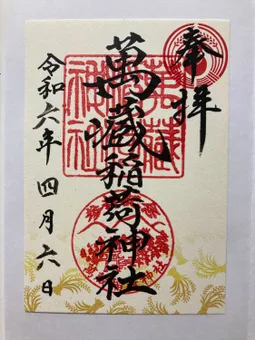 奉拝
萬蔵稲荷神社
令和六年四月六日